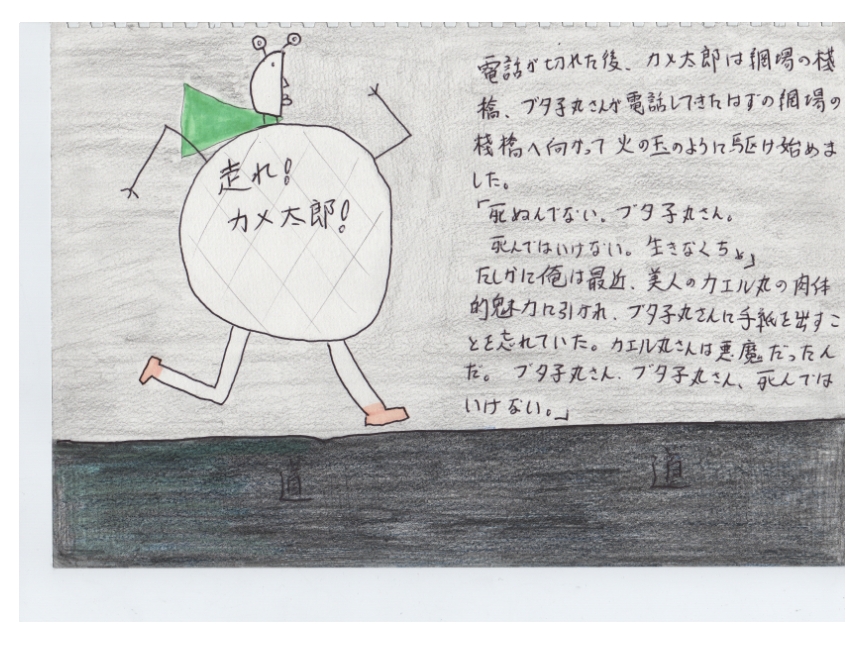 走れ!
カメ太郎!
電話が切れた後、カメ太郎は網場の桟
橋、ブタ子丸さんが電話してきたはずの網場の
桟橋へ向かって火の玉のように駆け始めま
した。
「死ぬんでない。ブタ子丸さん。
死んではいけない。生きなくちゃ」
たしかに俺は最近、美人のカエル丸の肉体
的魅力に引かれ、ブタ子丸さんに手紙を出すこ
とを忘れていた。カエル丸さんは悪魔だったん
だ。ブタ子丸さん、ブタ子丸さん、死んでは
いけない。」
道 道